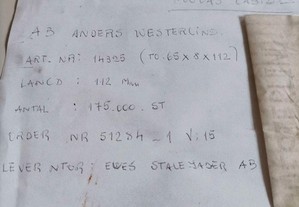 AB ANDERS WESTERLIND
ART. NR: 14325 (T0.65 X 8 X 112)
LANGD : 112 Mm
ANTAL : 175.000 ST
ORDER NR 51284-1 V:15
LEVERNTOR: EWES STALFJADER AB